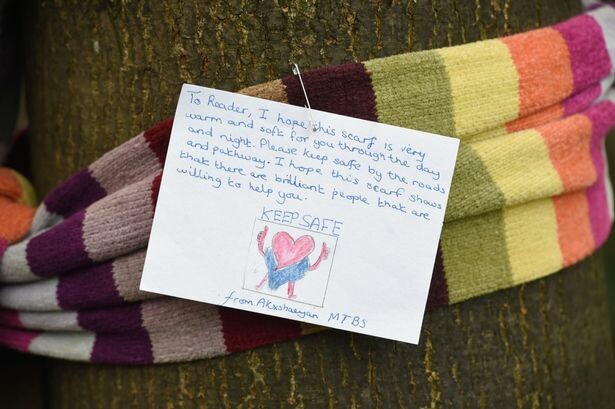 To Reader, I hope this scarf is very
warm and soft for you through the day
and night. Please keep safe by the roads
and pathway. I hope this scarf shows
that there are brilliant people that are
willing to help you.
KEEP SAFE
from Akxshaeyan MTBS